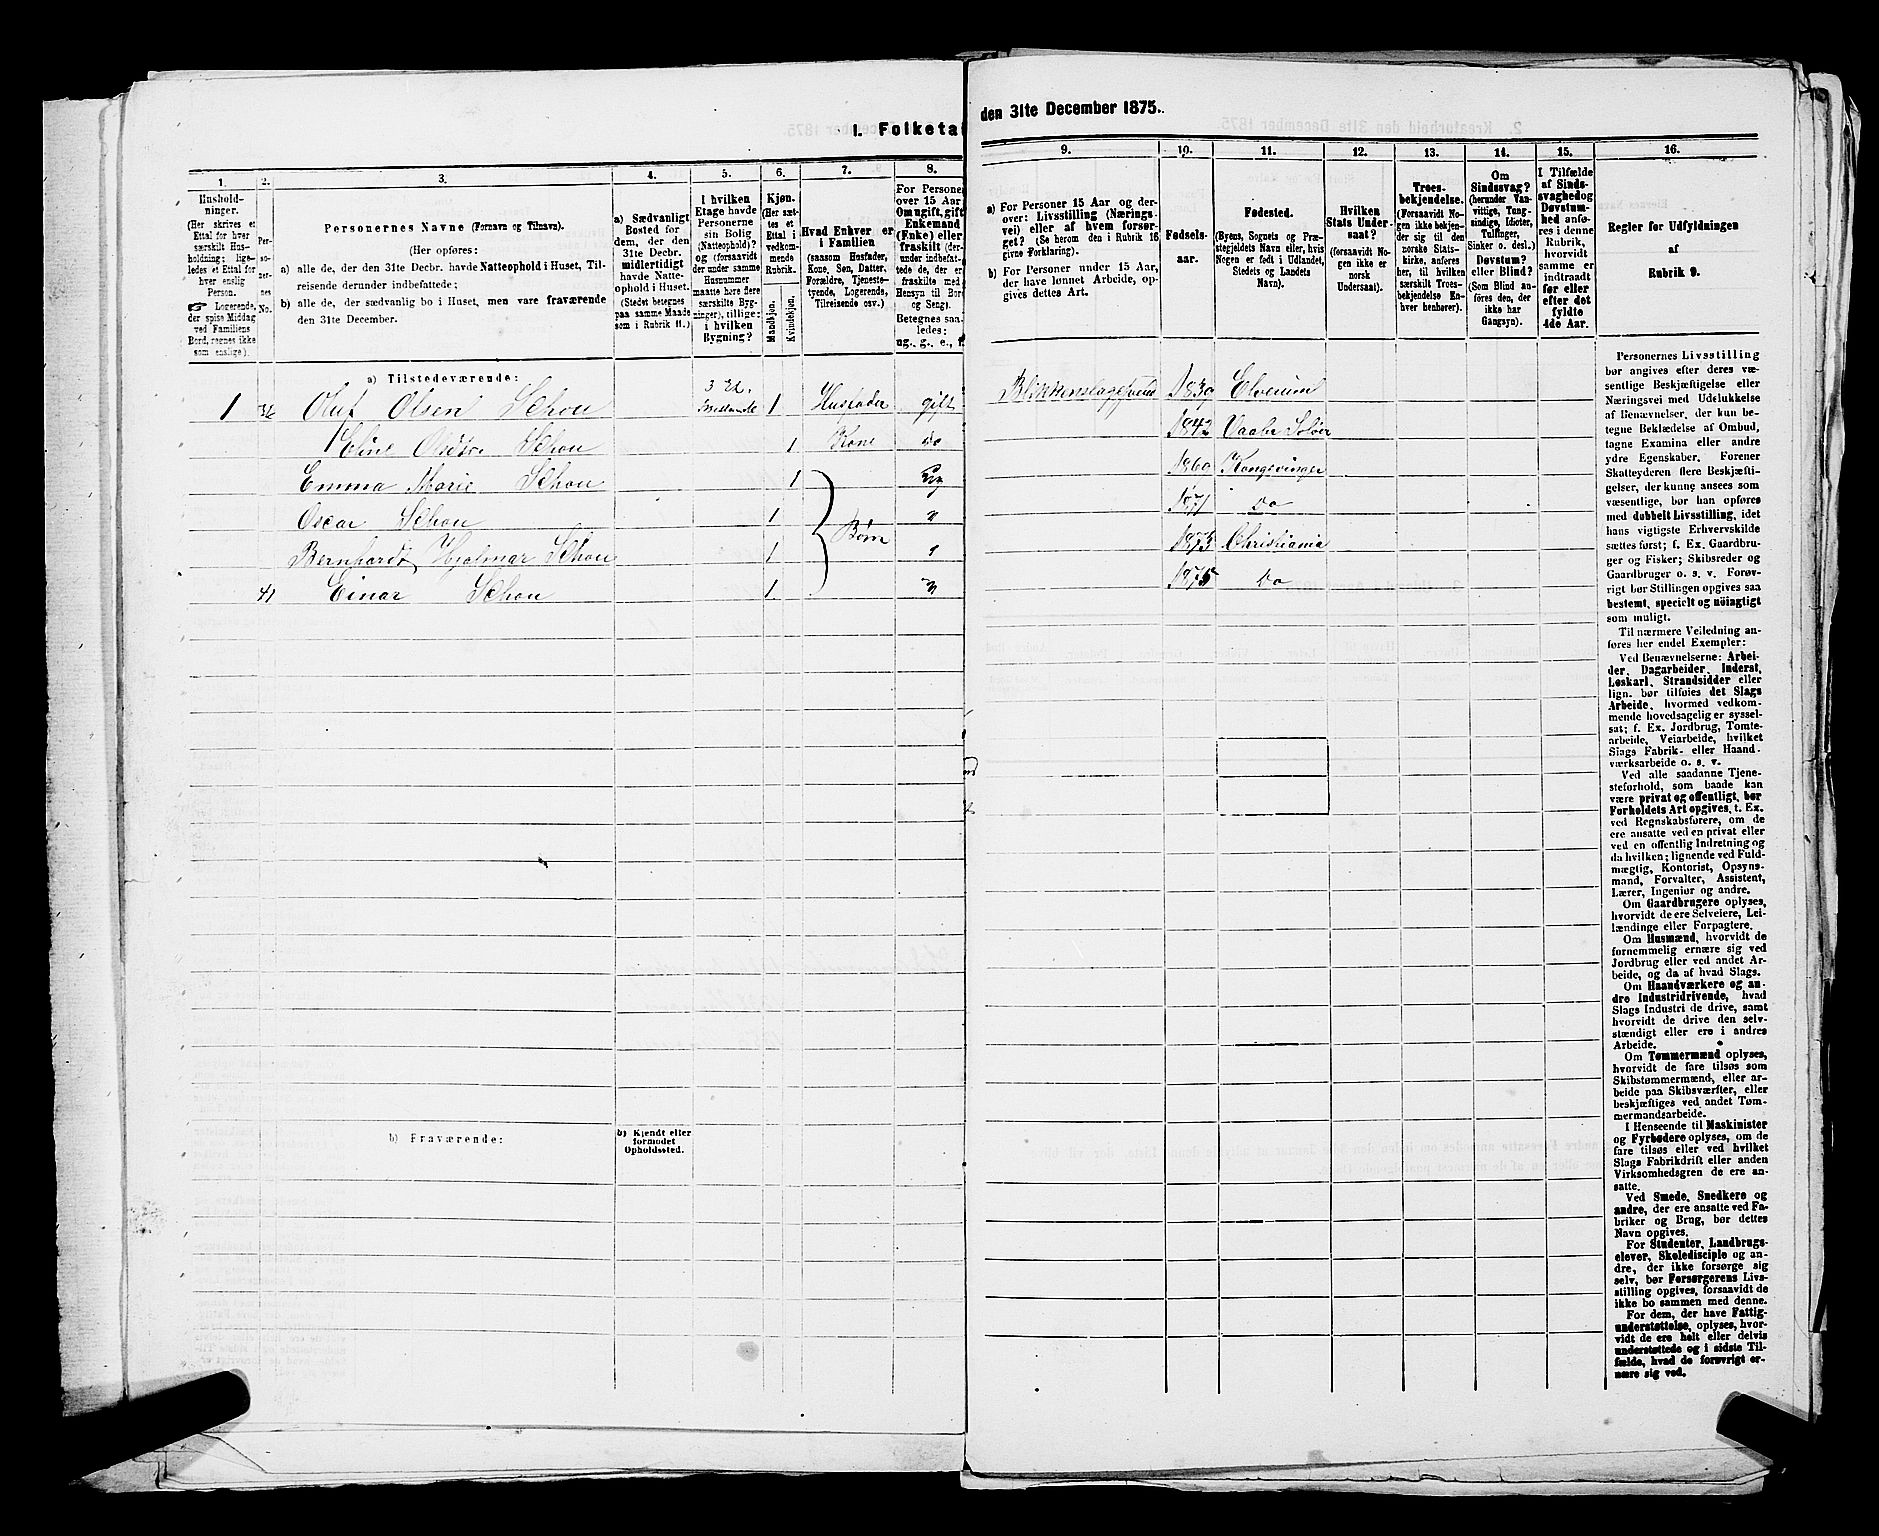 I. Folketal
den 31te December 1875.
1. 2. 3. 4. 5. 6. 7. 8. 9. 10. 11. 12. 13. 14. 15. 16.
Husholdninger.
(Her skrives et
Ettal for hver
særskilt Husholdning;
ligeledes et Ettal for
hver enslig
Person.
☞ Logerende,
der spise Middag
ved Familiens
Bord, regnes ikke
som enslige).
Personernes No.
Personernes Navne (Fornavn og Tilnavn).
(Her opføres:
a) alle de, der den 31te Decbr. havde Natteophold i Huset, Tilreisende derunder indbefattede;
b) alle de, der sædvanlig bo i Huset, men vare fraværende
den 31te December.
a) Sædvanligt
Bosted for
dem, der den
31te Decbr.
midlertidigt
havde Natteophold i Huset.
(Stedet betegnes
paa samme Maade
som i Rubrik 11.)
I hvilken
Etage havde
Personerne
sin Bolig
(Natteophold)?
og (forsaavidt
der under samme
Husnummer
maatte høre flere
særskilte Bygninger), tillige:
i hvilken
Bygning?
Kjøn.
(Her sættes et
Ettal i
vedkommende
Rubrik.
Mandkjøn.
Kvindekjøn.
Hvad Enhver er
i Familien
(saasom Husfader,
Kone, Søn, Datter,
Forældre, Tjenestetyende, Logerende,
Tilreisende osv.)
For Personer
over 15 Aar:
Om ugift, gift
Enkemand
(Enke) eller
fraskilt (derunder indbefattede de, der er
fraskilte med
Hensyn til Bord
og Seng).
Betegnes saaledes:
ug., g., e., f.
a) For Personer 15 Aar og derover: Livsstilling (Næringsvei) eller af hvem forsørget? (Se herom den i Rubrik 16
givne Forklaring).
b) For Personer under 15 Aar,
der have lønnet Arbeide, opgives dettes Art.
Fødselsaar.
Fødested.
(Byens, Sognets og Præstegjeldets Navn eller, hvis
Nogen er født i Udlandet,
Stedets og Landets
Navn).
Hvilken
Stats Undersaat?
(forsaavidt Nogen ikke er
norsk
Undersaat).
Troesbekjendelse.
(Forsaavidt Nogen ikke bekjender sig til den
norske Statskirke, anføres
her, til hvilken
særskilt Troesbekjendelse Enhver henhører).
Om
Sindssvag?
(herunder Vanvittige, Tungsindige, Idioter,
Tullinger,
Sinker o. desl.)
Døvstum?
eller Blind?
(Som Blind anføres den, der
ikke har
Gangsyn).
I Tilfælde
af Sindssvaghed og
Døvstumhed anføres i denne
Rubrik,
hvorvidt
samme er
indtraadt
før eller
efter det
fyldte
4de Aar.
Regler for Udfyldningen
af
Rubrik 9.
a) Tilstedeværende:
1 Oluf Olsen Schou 3 Et. 1 Husfader gift Blikkenslagersvend 1839 Elverum
Eline Olsdtr. Schou 1 Kone do 1842 Vaaler Solør
Emma Marie Schou 1 1869 Kongsvinger
Oscar Schou 1 " 1871 do
Børn
Bernhardt Hjalmar Schou 1 " 1873 Christiania
41 Einar Schou 1 " 1875 do
b) Fraværende:
b) Kjendt eller
formodet
Opholdssted.
Personernes Livsstilling
bør angives efter deres væsentlige Beskjæftigelse eller
Næringsvei med Udelukkelse
af Benævnelser, der kun betegne Beklædelse af Ombud,
tagne Examina eller andre
ydre Egenskaber. Forener
Skatteyderen flere Beskjæftigelser, der kunne ansees som
væsentlige, bør han opføres
med dobbelt Livsstilling, idet
hans vigtigste Erhvervskilde
sættes først; f. Ex. Gaardbruger og Fisker; Skibsreder og
Gaardbruger o. s. v. Forøvrigt bør Stillingen opgives saa
bestemt, specielt og nøiagtigt
som muligt.
Til nærmere Veiledning anføres her endel Exempler:
Ved Benævnelserne: Arbeider, Dagarbeider, Inderst,
Løskarl, Strandsidder eller
lign. bør tilføies det Slags
Arbeide, hvormed vedkommende hovedsagelig er sysselsat; f. Ex. Jordbrug, Tomtearbeide, Veiarbeide, hvilket
Slags Fabrik- eller Haandværksarbeide o. s. v.
Ved alle saadanne Tjenesteforhold, som baade kan
være privat og offentligt, bør
Forholdets Art opgives, t. Ex.
ved Regnskabsførere, om de
ere ansatte ved en privat eller
ved en offentlig Indretning og
da hvilken; lignende ved Fuldmægtig, Kontorist, Opsynsmand, Forvalter, Assistent,
Lærer, Ingeniør og andre.
Om Gaardbrugere oplyses,
hvorvidt de ere Selveiere, Leilændinge eller Forpagtere.
Om Husmænd, hvorvidt de
fornemmelig ernære sig ved
Jordbrug eller ved andet Arbeide, og da af hvad Slags.
Om Haandværkere og andre Industridrivende, hvad
Slags Industri de drive, samt
hvorvidt de drive den selvstændigt eller ere i andres
Arbeide.
Om Tømmermænd oplyses,
hvorvidt de fare tilsøs som
Skibstømmermænd, eller arbeide paa Skibsværfter, eller
beskjæftiges ved andet Tømmermandsarbeide.
I Henseende til Maskinister
og Fyrbødere oplyses, om de
fare tilsøs eller ved hvilket
Slags Fabrikdrift eller anden
Virksomhedsgren de ere ansatte.
Ved Smede, Snedkere og
andre, der ere ansatte ved Fabriker og Brug, bør dettes
Navn opgives.
For Studenter, Landbrugselever, Skoledisciple og andre, der ikke forsørge sig
selv, bør Forsørgerens Livsstilling opgives, forsaavidt de
ikke bo sammen med denne.
For dem, der have Fattigunderstøttelse, oplyses, hvorvidt de ere helt eller delvis
understøttede og i sidste Tilfælde, hvad de forøvrigt ernære sig ved.